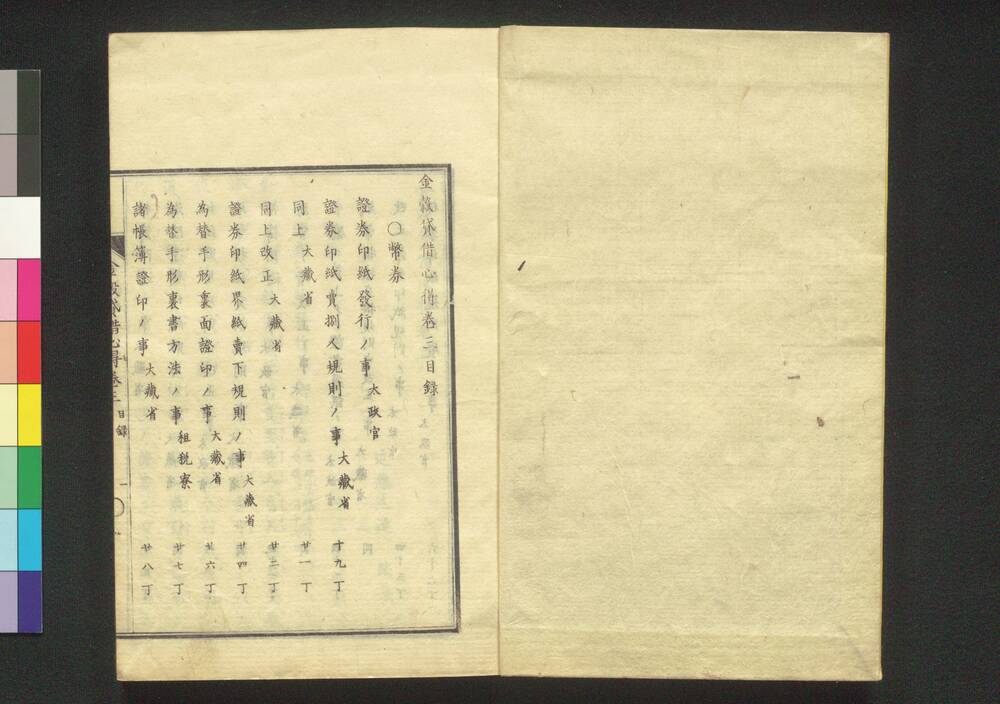 金穀貸借心得巻三目録
〇幣券
證券印紙發行ノ事 太政官
證券印紙賣捌人規則ノ事 大藏省 十九丁
同上 大藏省 廿一丁
同上改正 大藏省 廿二丁
證券印紙界紙賣下規則ノ事 大藏省 廿四丁
為替手形裏面證印ノ事 大藏省 廿六丁
為替手形裏書方法ノ事 租税寮 廿七丁
諸帳簿證印ノ事 大藏省 廿八丁
金穀貸借心得巻三 目録 一